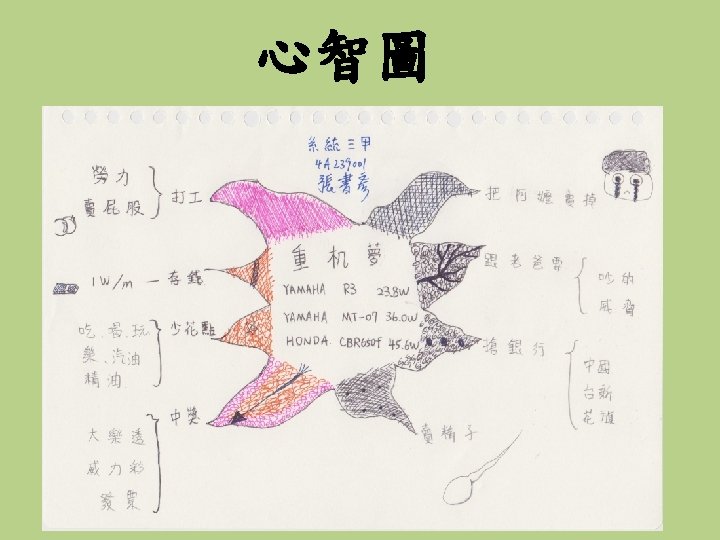 心智圖
系統三甲
4A239001
張書彥
勞力
賣屁股
打工
1W/m
存錢
吃、喝、玩
樂、汽油
精油
少花點
中獎
大樂透
威力彩
發票
重机夢
YAMAHA R3 23.8W
YAMAHA MT-07 36.0W
HONDA CBR650f 45.6W
把阿嬤賣掉
跟老爸要
吵的
威脅
搶銀行
中國
台新
花旗
賣精子